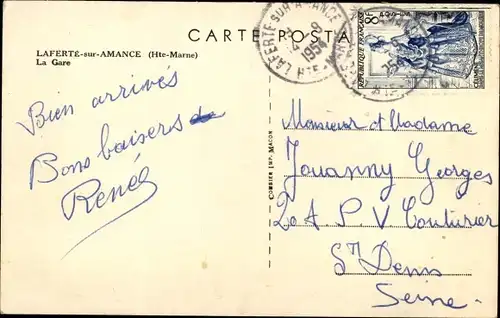 CARTE POSTA
LAFERTÉ-sur-AMANCE (Hte-Marne)
La Gare
LAFERTE-SUR-AMANCE
1954
Hte-MARNE
8F
REPUBLIQUE FRANÇAISE
Bien arrivés
Bons baisers de
Renée
COMBIER IMP. MACON
Monsieur et Madame
Jouanny Georges
2e A. P. V Couturier
St Denis
Seine